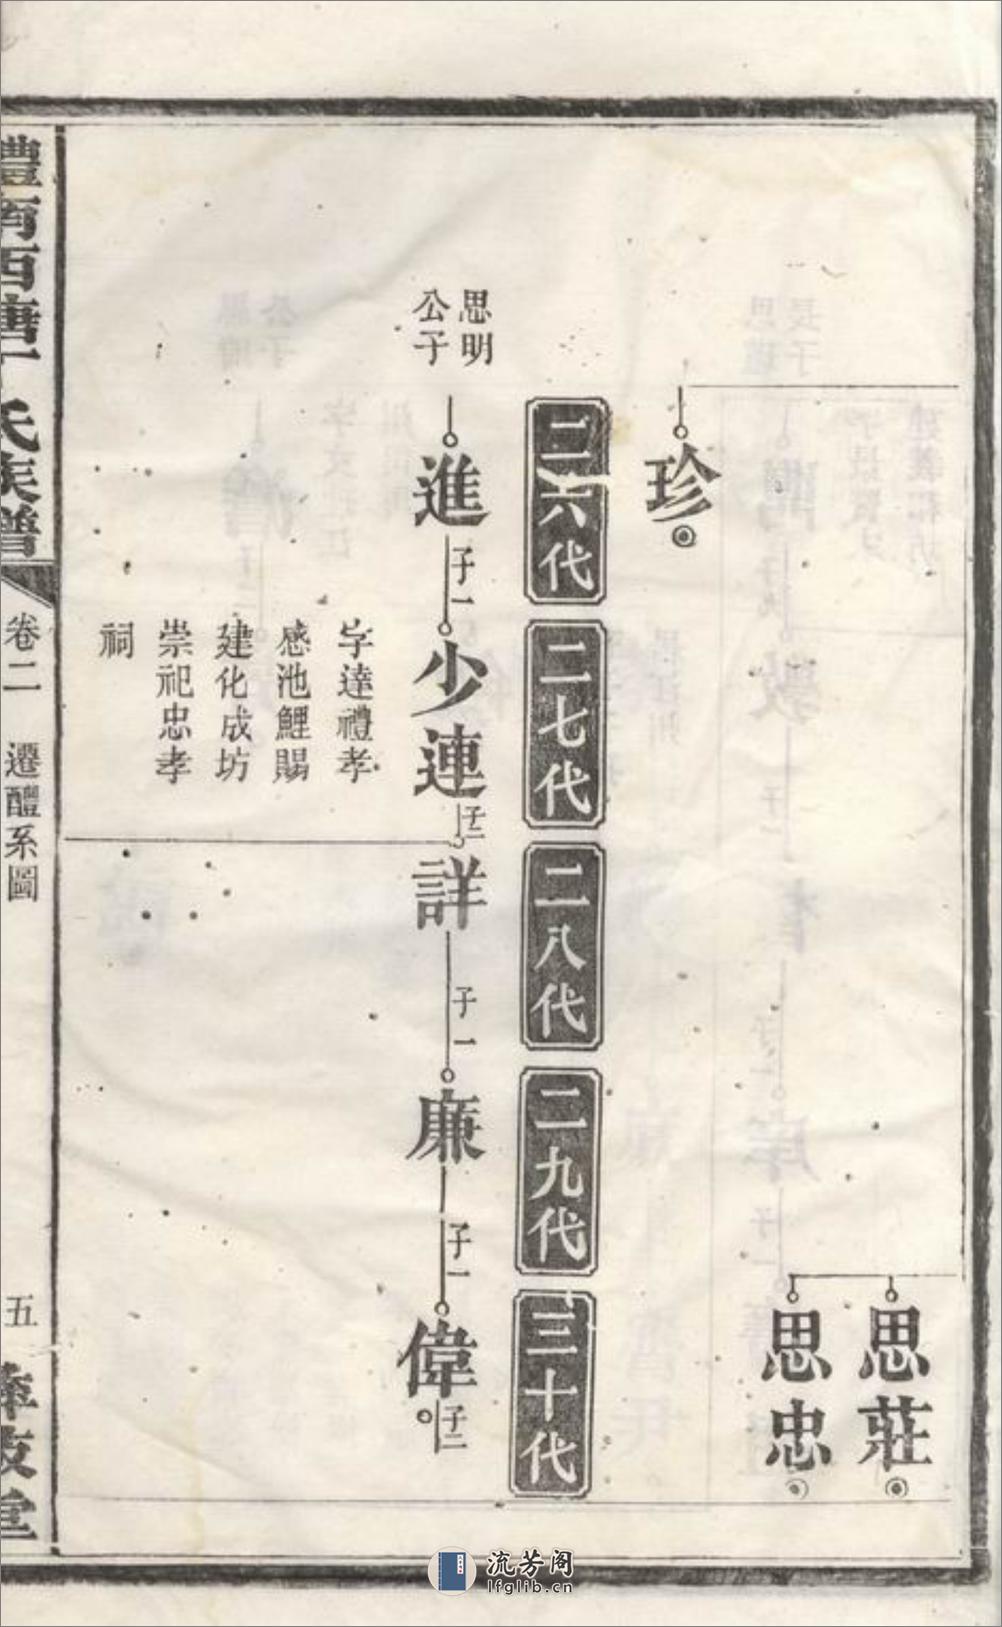 思莊
思忠
珍
二六代
二七代
二八代
二九代
三十代
思明
公子
進
子一
少連
子二
詳
子一
廉
子一
偉
子二
字達禮孝
感池鯉賜
建化成坊
崇祀忠孝
祠
澧南西唐丁氏族譜
卷二
遷醴系圖
五
流芳阁
lfglib.cn